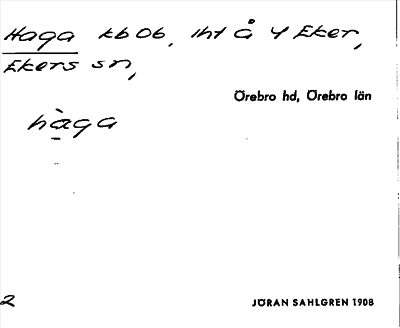 Haga kbOb, iht å Y Eker,
Ekers sn,
Örebro hd, Örebro län
hàga
2
JÖRAN SAHLGREN 1908